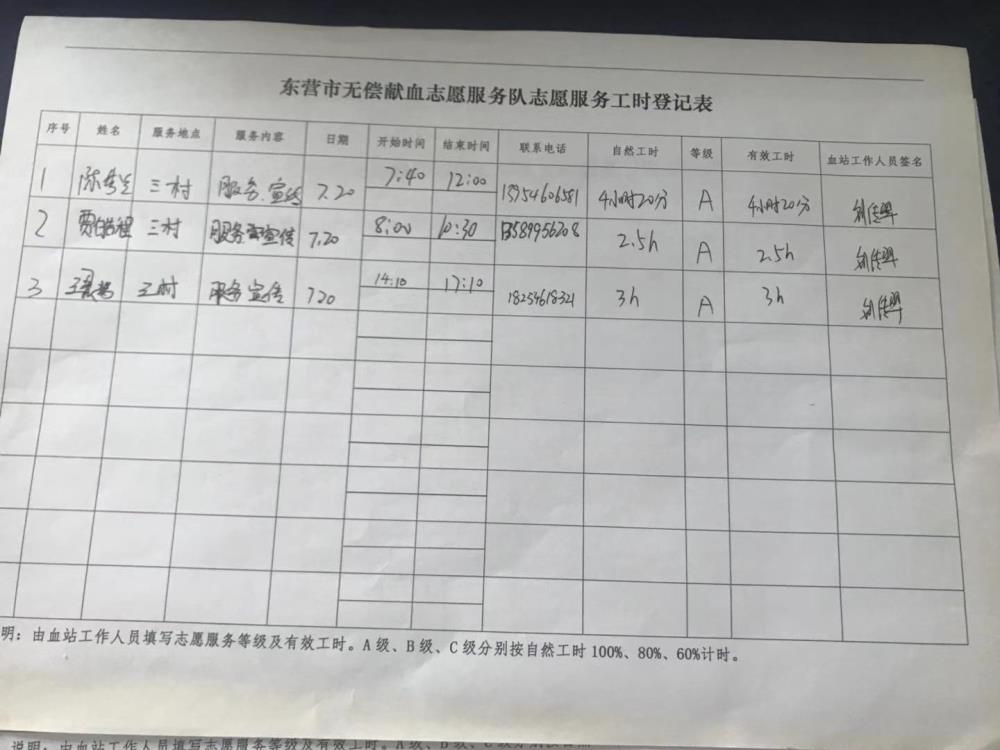 东营市无偿献血志愿服务队志愿服务工时登记表
序号 姓名 服务地点 服务内容 日期 开始时间 结束时间 联系电话 自然工时 等级 有效工时 血站工作人员签名
1 三村 服务.宣传 7.20 7:40 12:00 13754606581 4小时20分 A 4小时20分
2 三村 服务宣传 7.20 8:00 10:30 13589956208 2.5h A 2.5h
3 三村 服务宣传 7.20 14:10 17:10 18254618321 3h A 3h
明：由血站工作人员填写志愿服务等级及有效工时。A级、B级、C级分别按自然工时100%、80%、60%计时。
说明：由血站工作人员填写志愿服务等级及有效工时。A级、B级、C级分别按自然